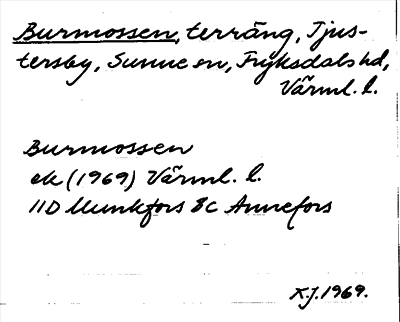 Burmossen, terräng, Tjus-
tersby, Sunne sn, Fryksdals hd,
Värml. l.
Burmossen
ek (1969) Värml. l.
11D Munkfors 8c Annefors
K.J. 1969.